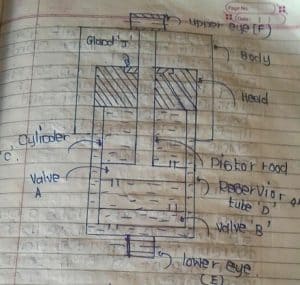 Page No.
Date
upper eye [F]
Gland 'J'
Body
Head
Cylinder
'C'
Pistor rood
Valve
A
Reservior
tube 'D'
Valve 'B'
lower eye
(E)